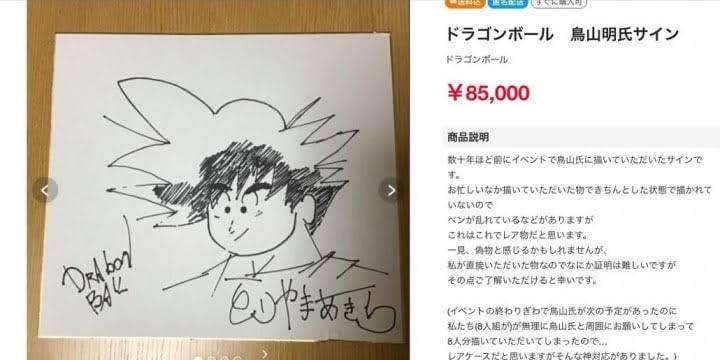 送料込 匿名配送 すぐに購入可
ドラゴンボール 鳥山明氏サイン
ドラゴンボール
¥85,000
商品説明
数十年ほど前にイベントで鳥山氏に描いていただいたサインで
す。
お忙しいなか描いていただいた物できちんとした状態で描かれて
いないので
ペンが乱れているなどがありますが
これはこれでレア物だと思います。
一見、偽物と感じるかもしれませんが、
私が直接いただいた物なのでなにか証明は難しいですが
その点ご了解いただけると幸いです。
(イベントの終わりぎわで鳥山氏が次の予定があったのに
私たち(8人組)が無理に鳥山氏と周囲にお願いしてしまって
8人分描いていただいてしまったので…
レアケースだと思いますがそんな神対応がありました。)
DRAGON
BALL
とりやまあきら